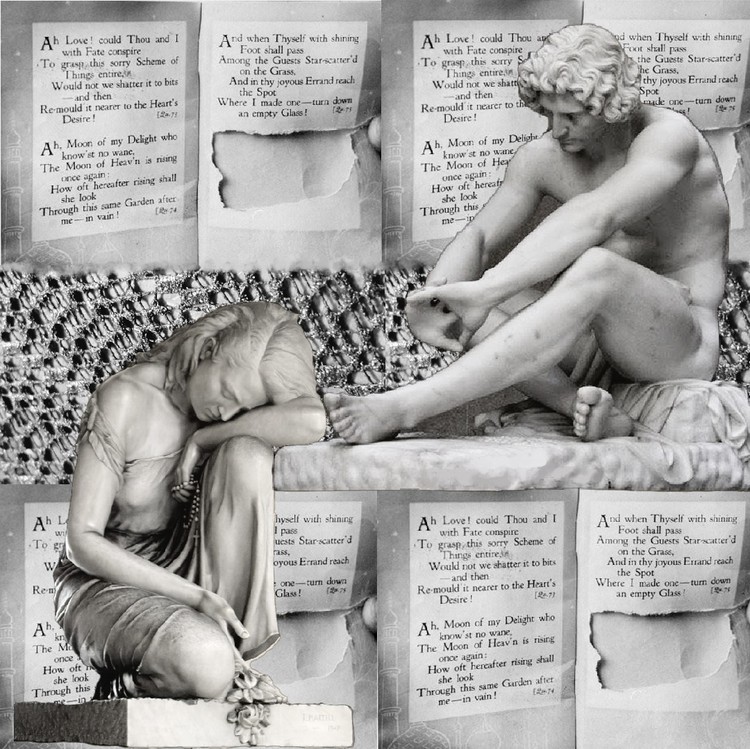 Ah Love! could Thou and I
with Fate conspire
To grasp this sorry Scheme of
Things entire,
Would not we shatter it to bits
—and then
Re-mould it nearer to the Heart's
Desire!
Ah, Moon of my Delight who
know'st no wane,
The Moon of Heav'n is rising
once again:
How oft hereafter rising shall
she look
Through this same Garden after
me—in vain!
And when Thyself with shining
Foot shall pass
Among the Guests Star-scatter'd
on the Grass,
And in thy joyous Errand reach
the Spot
Where I made one—turn down
an empty Glass!
Ah Love! could Thou and I
with Fate conspire
To grasp this sorry Scheme of
Things entire,
Would not we shatter
—and then
Re-mould it nearer to the
Desire!
Ah, Moon of my Deligh
know'st no wane,
The Moon of Heav'n
once again:
How oft hereaf
she look
Through this
me—in
nd when Thyself with shining
Foot shall pass
he Guests Star-scatter'd
Grass,
thy joyous Errand reach
Spot
made one—turn down
Glass!
Ah L
with
To
Thin
Would
Re-mou
De
Ah, M
kno
The Mo
once
How of
she look
Through this
me—in
hyself with shining
l pass
uests Star-scatter'd
rass,
oyous Errand reach
one—turn down
Glass!
Ah Love! could Thou and I
with Fate conspire
To grasp this sorry Scheme of
Things entire,
Would not we shatter it to bits
—and then
Re-mould it nearer to the Heart's
Desire!
Ah, Moon of my Delight who
know'st no wane,
The Moon of Heav'n is rising
once again:
How oft hereafter rising shall
she look
Through this same Garden after
me—in vain!
And when Thyself with shining
Foot shall pass
Among the Guests Star-scatter'd
on the Grass,
And in thy joyous Errand reach
the Spot
Where I made one—turn down
an empty Glass!